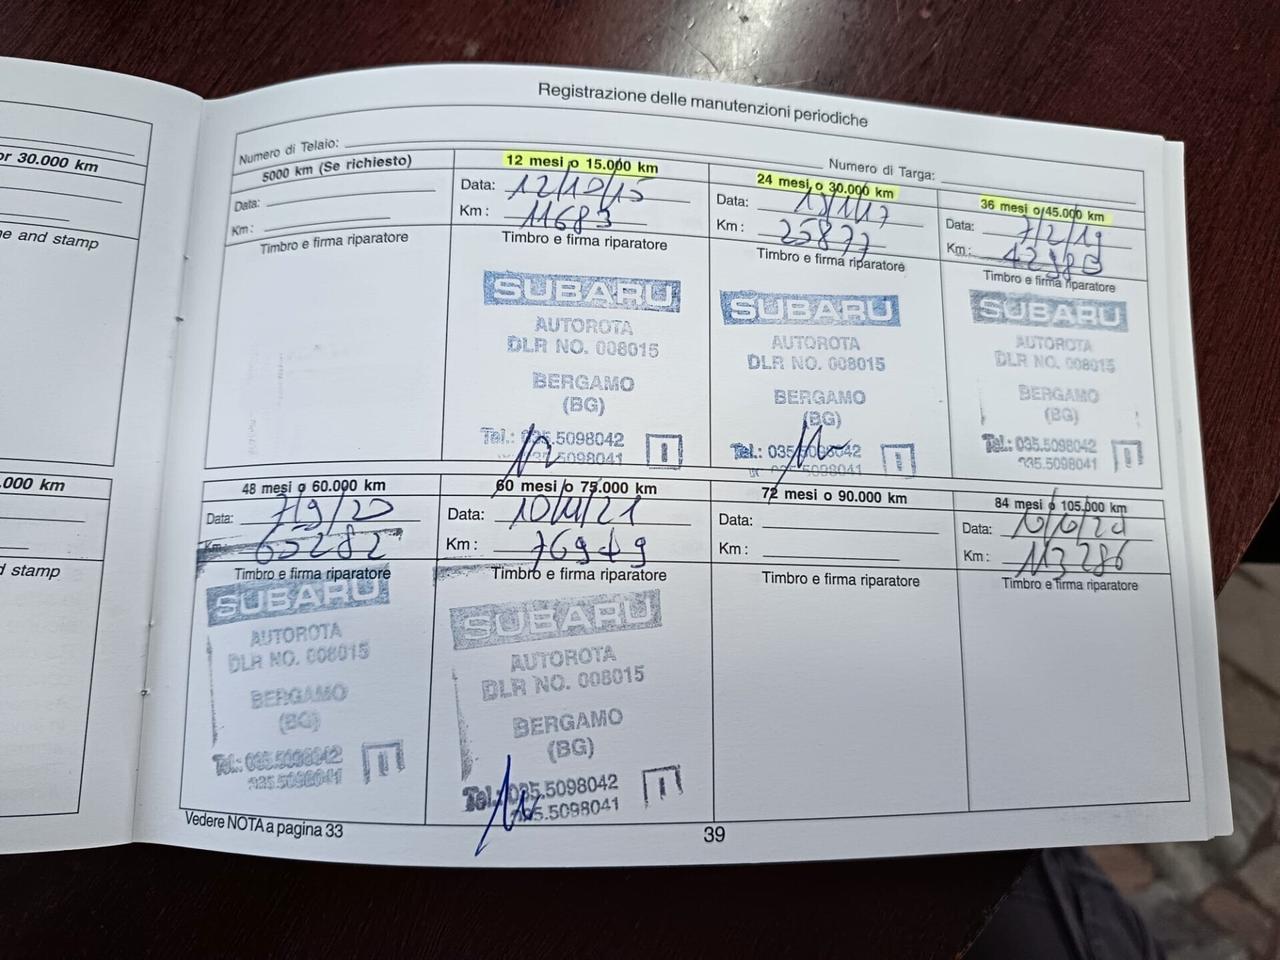 or 30.000 km
e and stamp
.000 km
d stamp
Registrazione delle manutenzioni periodiche
Numero di Telaio:
Numero di Targa:
5000 km (Se richiesto)
Data:
Km :
Timbro e firma riparatore
12 mesi o 15.000 km
Data: 12/10/15
Km : 11683
Timbro e firma riparatore
SUBARU
AUTOROTA
DLR NO. 008015
BERGAMO
(BG)
Tel.: 035.5098042
035.5098041
24 mesi o 30.000 km
Data:
Km : 25877
Timbro e firma riparatore
SUBARU
AUTOROTA
DLR NO. 008015
BERGAMO
(BG)
Tel.: 035.5098042
035.5098041
36 mesi o 45.000 km
Data: 7/2/19
Km :
Timbro e firma riparatore
SUBARU
AUTOROTA
DLR NO. 008015
BERGAMO
(BG)
Tel.: 035.5098042
035.5098041
48 mesi o 60.000 km
Data: 7/9/20
Km : 65282
Timbro e firma riparatore
SUBARU
AUTOROTA
DLR NO. 008015
BERGAMO
(BG)
Tel.: 035.5098042
035.5098041
60 mesi o 75.000 km
Data:
Km : 76949
Timbro e firma riparatore
SUBARU
AUTOROTA
DLR NO. 008015
BERGAMO
(BG)
Tel.: 035.5098042
035.5098041
72 mesi o 90.000 km
Data:
Km :
Timbro e firma riparatore
84 mesi o 105.000 km
Data:
Km : 113286
Timbro e firma riparatore
Vedere NOTA a pagina 33
39